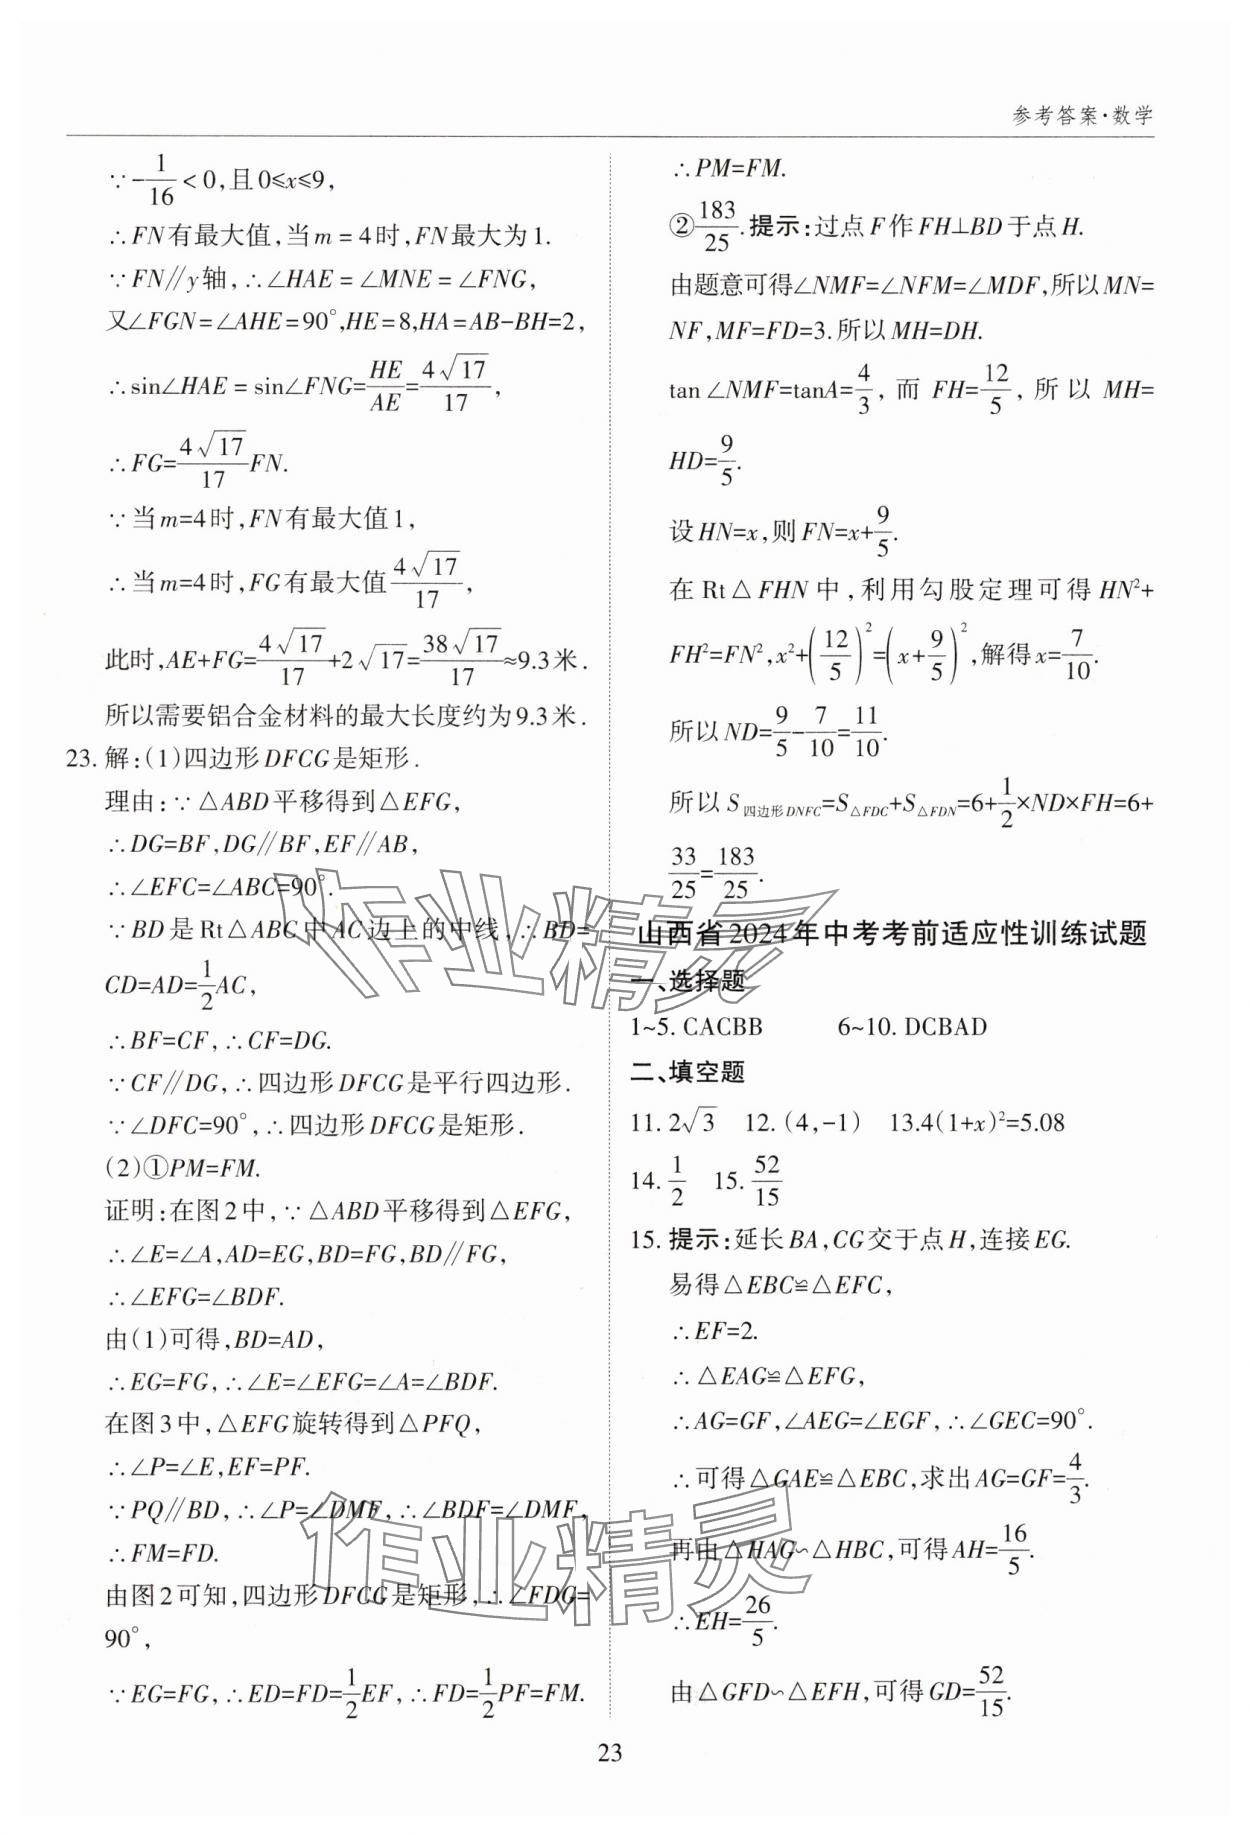 参考答案·数学
∵-1/16<0,且0≤x≤9,
∴FN有最大值,当m=4时,FN最大为1.
∵FN∥y轴,∴∠HAE=∠MNE=∠FNG,
又∠FGN=∠AHE=90°,HE=8,HA=AB-BH=2,
∴sin∠HAE=sin∠FNG=HE/AE=4√17/17,
∴FG=4√17/17FN.
∵当m=4时,FN有最大值1,
∴当m=4时,FG有最大值4√17/17,
此时,AE+FG=4√17/17+2√17=38√17/17≈9.3米.
所以需要铝合金材料的最大长度约为9.3米.
23.解:(1)四边形DFCG是矩形.
理由:∵△ABD平移得到△EFG,
∴DG=BF,DG∥BF,EF∥AB,
∴∠EFC=∠ABC=90°.
∵BD是Rt△ABC中AC边上的中线,∴BD=
CD=AD=1/2AC,
∴BF=CF,∴CF=DG.
∵CF∥DG,∴四边形DFCG是平行四边形.
∵∠DFC=90°,∴四边形DFCG是矩形.
(2)①PM=FM.
证明:在图2中,∵△ABD平移得到△EFG,
∴∠E=∠A,AD=EG,BD=FG,BD∥FG,
∴∠EFG=∠BDF.
由(1)可得,BD=AD,
∴EG=FG,∴∠E=∠EFG=∠A=∠BDF.
在图3中,△EFG旋转得到△PFQ,
∴∠P=∠E,EF=PF.
∵PQ∥BD,∴∠P=∠DMF,∴∠BDF=∠DMF,
∴FM=FD.
由图2可知,四边形DFCG是矩形,∴∠FDG=
90°,
∵EG=FG,∴ED=FD=1/2EF,∴FD=1/2PF=FM.
∴PM=FM.
②183/25.提示:过点F作FH⊥BD于点H.
由题意可得∠NMF=∠NFM=∠MDF,所以MN=
NF,MF=FD=3.所以MH=DH.
tan∠NMF=tanA=4/3,而FH=12/5,所以MH=
HD=9/5.
设HN=x,则FN=x+9/5.
在Rt△FHN中,利用勾股定理可得HN²+
FH²=FN²,x²+(12/5)²=(x+9/5)²,解得x=7/10.
所以ND=9/5-7/10=11/10.
所以S四边形DNFC=S△FDC+S△FDN=6+1/2×ND×FH=6+
33/25=183/25.
山西省2024年中考考前适应性训练试题
一、选择题
1~5. CACBB 6~10. DCBAD
二、填空题
11. 2√3 12. (4,-1) 13.4(1+x)²=5.08
14. 1/2 15. 52/15
15.提示:延长BA,CG交于点H,连接EG.
易得△EBC≌△EFC,
∴EF=2.
∴△EAG≌△EFG,
∴AG=GF,∠AEG=∠EGF,∴∠GEC=90°.
∴可得△GAE≌△EBC,求出AG=GF=4/3.
再由△HAG∽△HBC,可得AH=16/5.
∴EH=26/5.
由△GFD∽△EFH,可得GD=52/15.
作业精灵
作业精灵
23